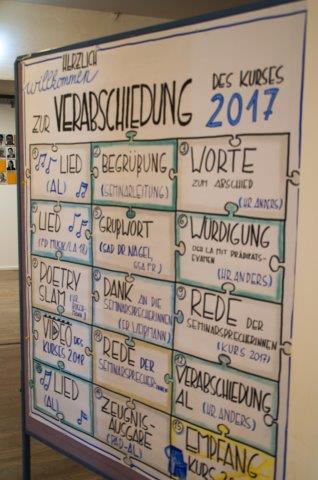 HERZLICH
willkommen
ZUR VERABSCHIEDUNG
DES KURSES
2017
LIED
(AL)
BEGRÜßUNG
(SEMINARLEITUNG)
WORTE
ZUM ABSCHIED
(HR. ANDERS)
LIED
(FD MUSIK/LA 18)
GRUßWORT
DR. NAGEL,
WÜRDIGUNG
DER LA MIT PRÄDIKATS-
EXAMEN
(HR. ANDERS)
POETRY
SLAM
DANK AN DIE
SEMINARSPRECHERINNEN
REDE DER
SEMINARSPRECHERINNEN
(KURS 2017)
VIDEO DES
KURSES 2018
REDE DER
SEMINARSPRECHER-INNEN
VERABSCHIEDUNG
AL (HR. ANDERS)
LIED
(AL)
ZEUGNIS-
AUSGABE
(PAD-AL)
EMPFANG
KURS